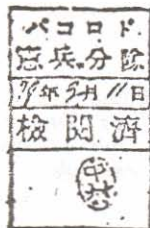 バコロド
憲兵分隊
19年9月11日
検閲済
中林